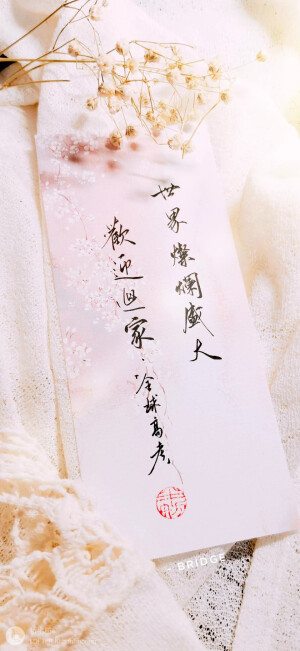 世界燦爛盛大
歡迎回家·全球高考
BRIDGE